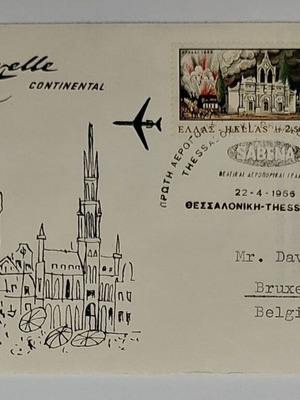 elle
CONTINENTAL
ΕΛΛΑΣ HELLAS
ΠΡΩΤΗ ΑΕΡΟΠΟ
THESSA
SABENA
ΒΕΛΓΙΚΑΙ ΑΕΡΟΠΟΡΙΚΑΙ ΓΡΑΜ
22-4-1966
ΘΕΣΣΑΛΟΝΙΚΗ-THESS
Mr. Dav
Bruxe
Belgi